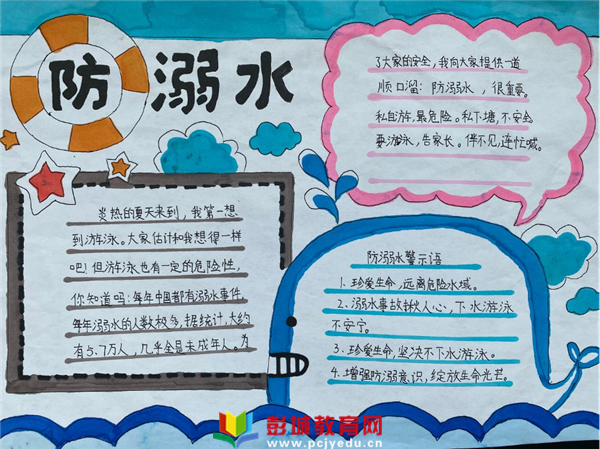 防溺水
炎热的夏天来到，我第一想
到游泳。大家估计和我想得一样
吧！但游泳也有一定的危险性，
你知道吗：每年中国都有溺水事件，
每年溺水的人数极多，据统计，大约
有5.7万人，几乎全是未成年人。为
了大家的安全，我向大家提供一道
顺口溜：防溺水，很重要。
私自游，最危险。私下塘，不安全
要游泳，告家长。伴不见，连忙喊。
防溺水警示语
1. 珍爱生命，远离危险水域。
2. 溺水事故揪人心，下水游泳
不安宁。
3. 珍爱生命，坚决不下水游泳。
4. 增强防溺意识，绽放生命光芒。
彭城教育网
www.pcjyedu.cn